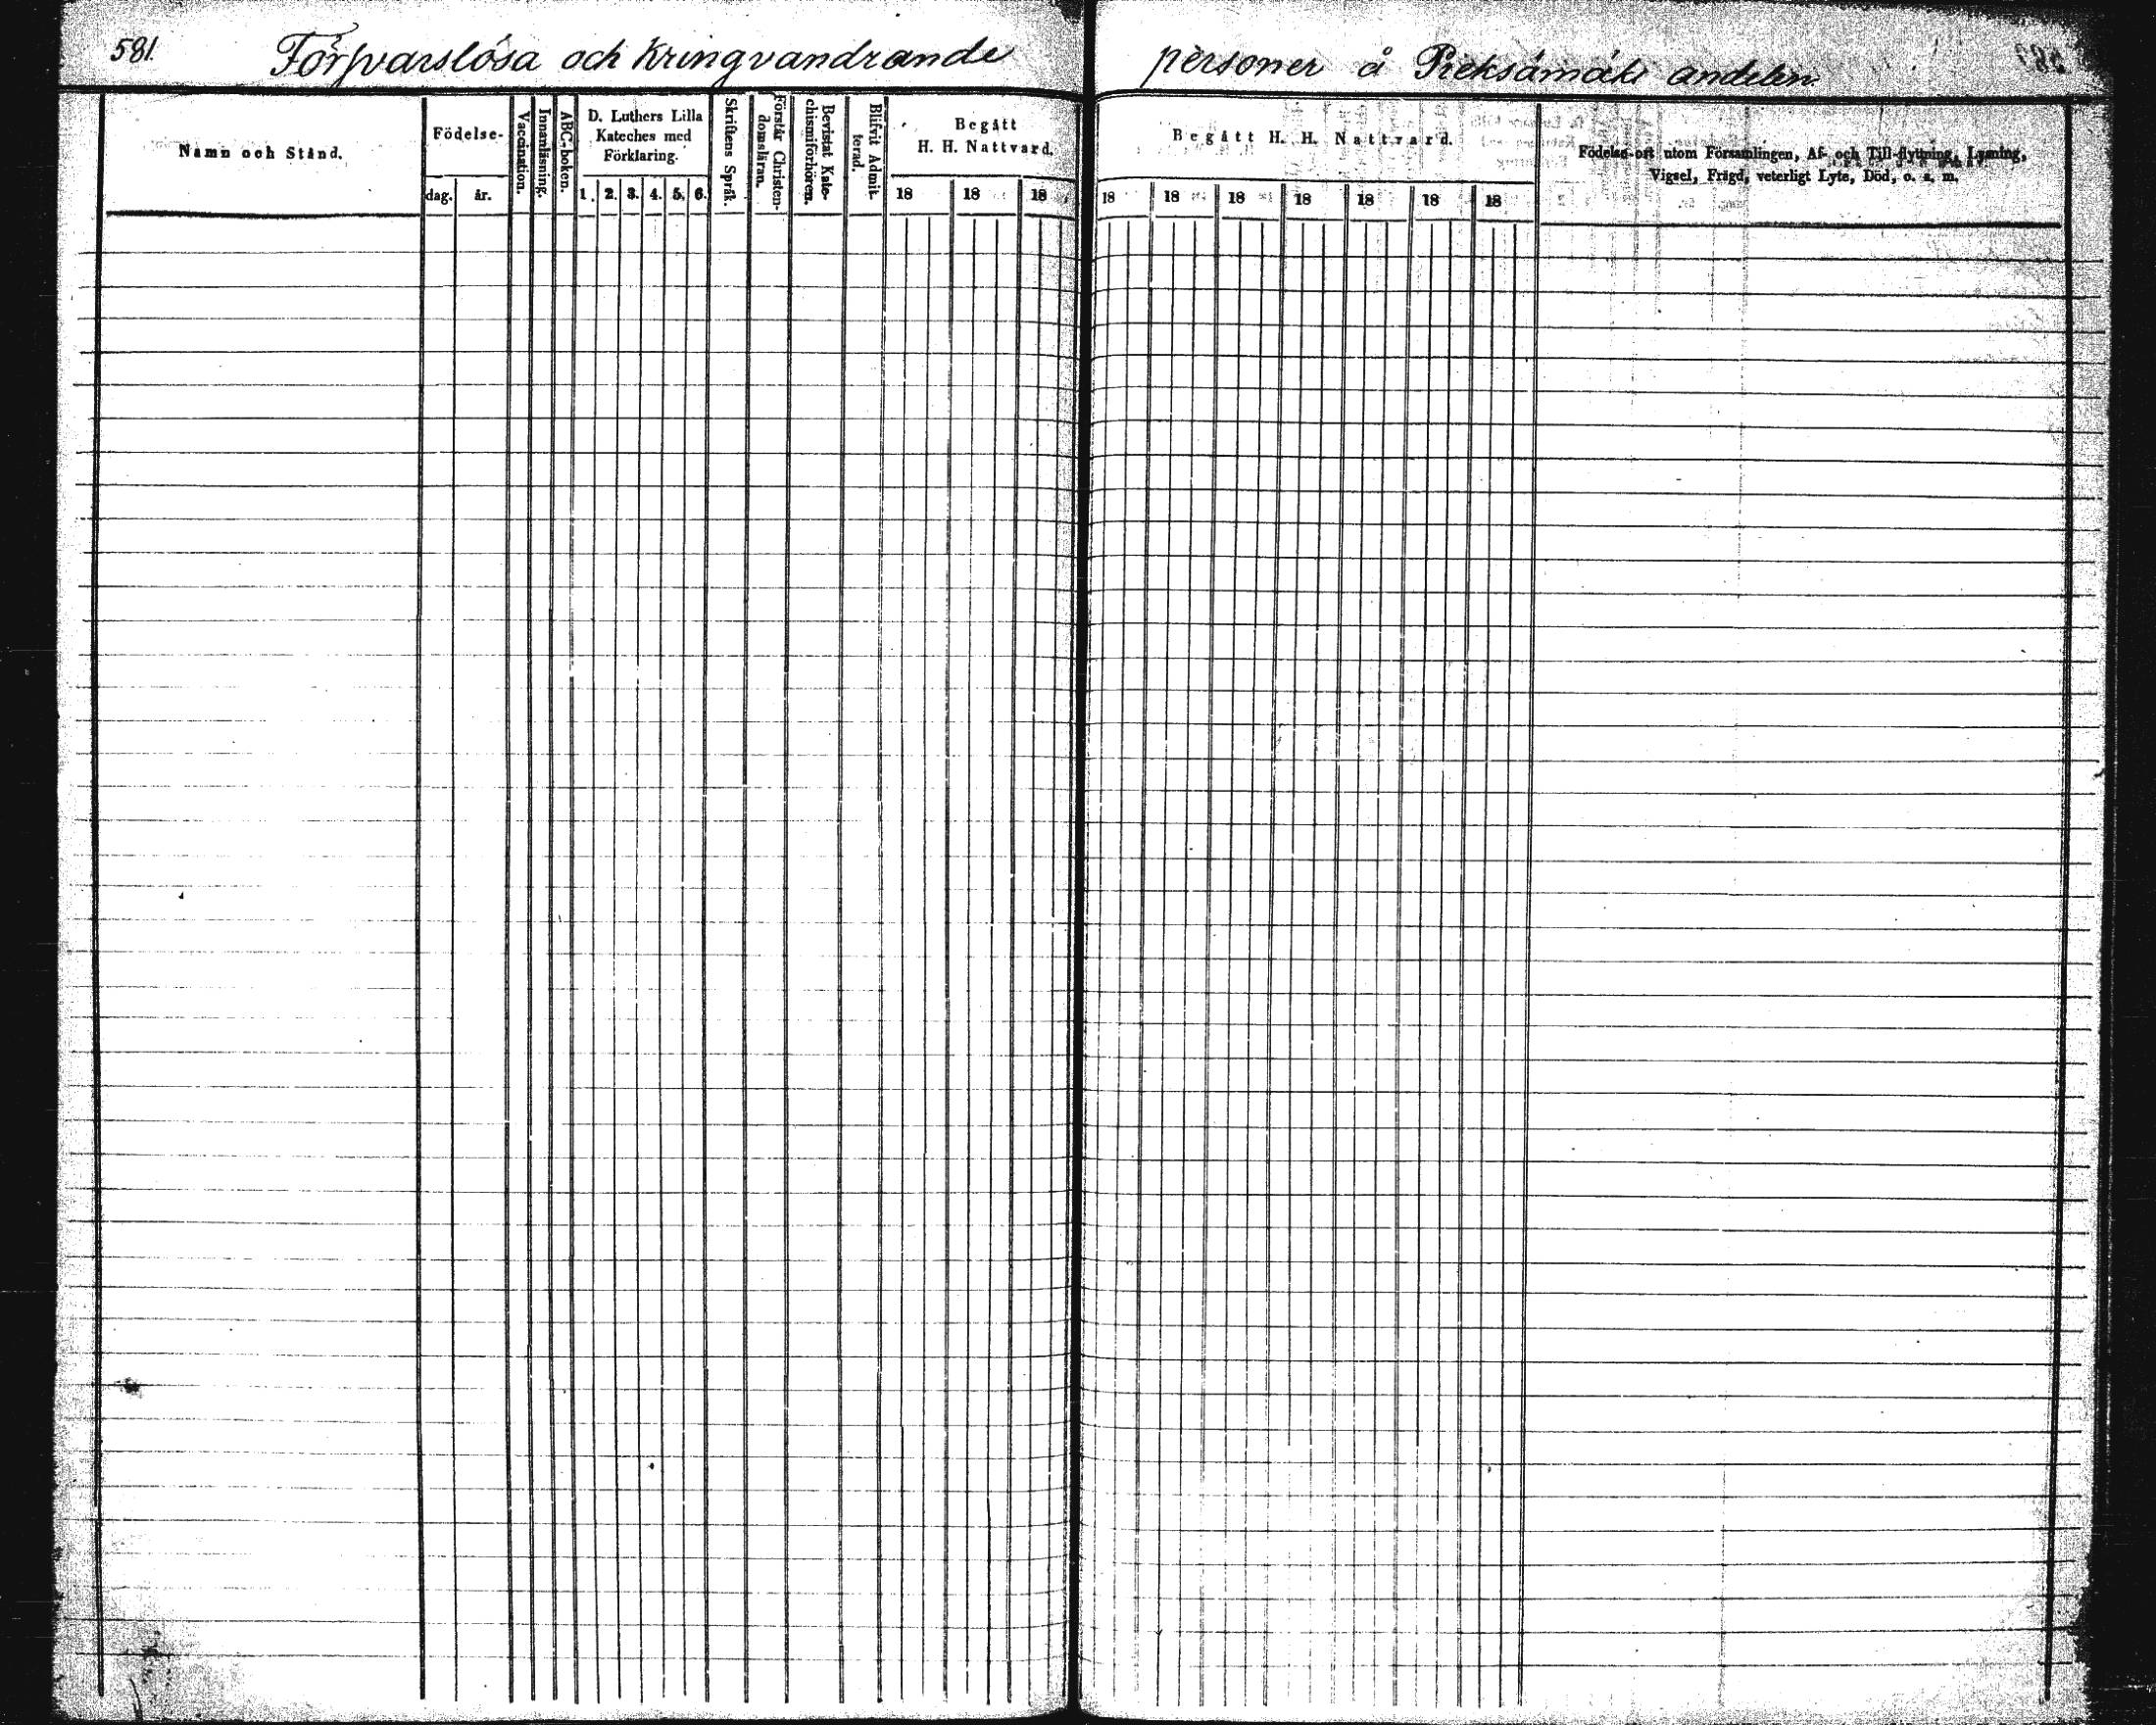 581.
Förſvarslösa och Kringvandrande personer å Pieksämäki andelen.
Namn och Stånd.
Födelse-
dag.
år.
Vaccination.
Innanläsning.
ABC-boken.
D. Luthers Lilla
Kateches med
Förklaring.
1. 2. 3. 4. 5. 6.
Skriftens Språk.
Förstår Christen-
domsläran.
Bevistat Kate-
chismiförhören.
Blifvit Admit-
terad.
Begått
H. H. Nattvard.
18 18 18
Begått H. H. Nattvard.
18 18 18 18 18 18 18
Födelse-ort utom Församlingen, Af- och Till-flyttning, Lysning,
Vigsel, Frägd, veterligt Lyte, Död, o. s. m.